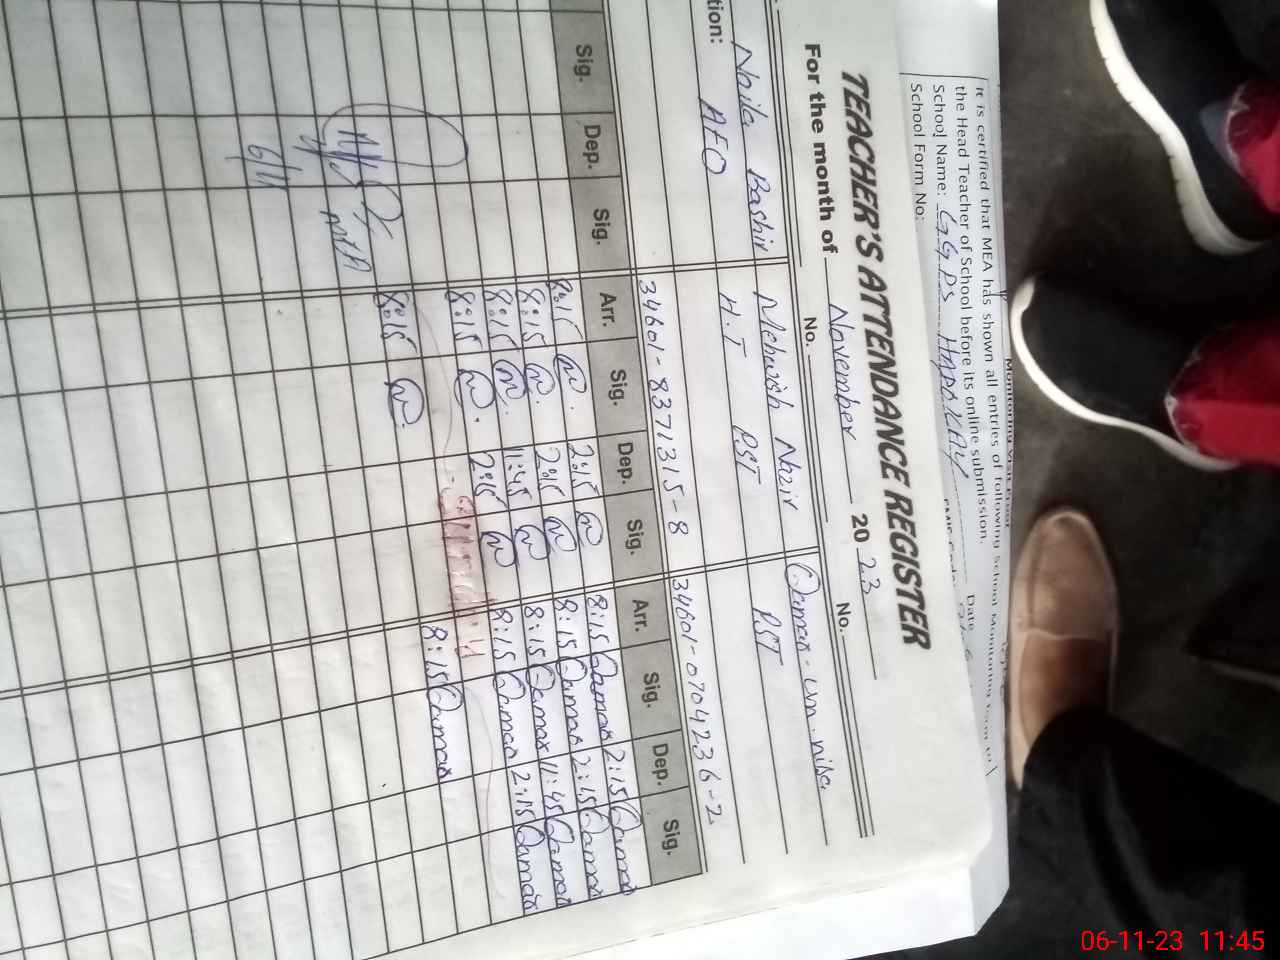 It is certified that MEA has shown all entries of following School Monitoring Form to
the Head Teacher of School before its online submission.
School Name: GGPS
School Form No:
Date
TEACHER'S ATTENDANCE REGISTER
For the month of November 2023
No. No.
Naila Bashir Mehwish Nazir Qamar-un-nisa
tion: AEO H.T PST PST
34601-8371315-8 34601-0704236-2
Sig. Dep. Sig. Arr. Sig. Dep. Sig. Arr. Sig. Dep. Sig.
8:15 2:15 8:15 Qamar 2:15 Qamar
8:15 2:15 8:15 Qamar 2:15 Qamar
8:15 11:45 8:15 Qamar 11:45 Qamar
8:15 2:15 8:15 Qamar 2:15 Qamar
8:15 8:15 Qamar
6/11
06-11-23 11:45